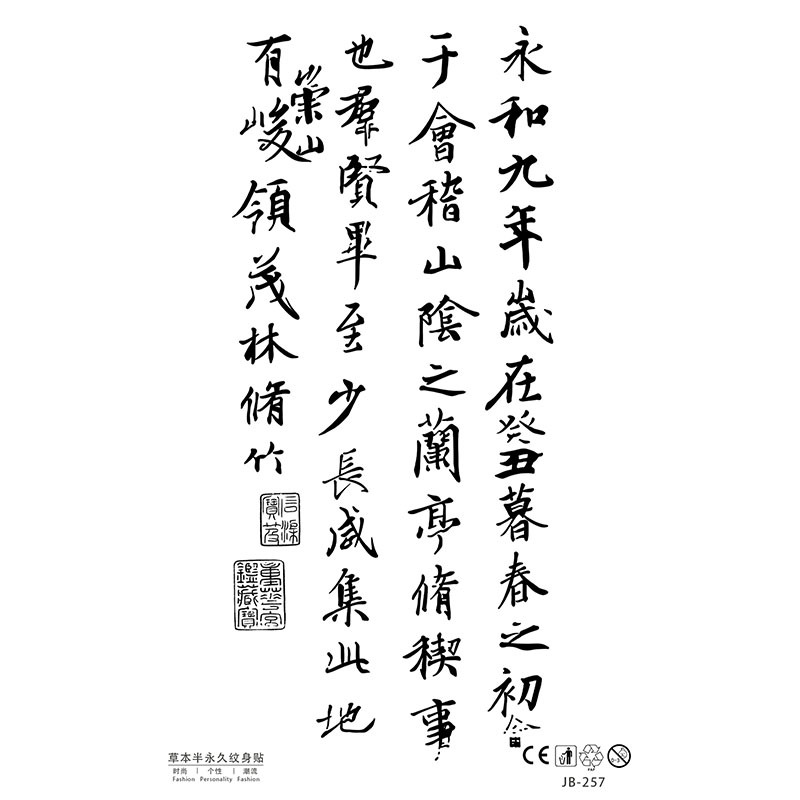 永和九年歲在癸丑暮春之初
于會稽山陰之蘭亭脩稧事
也羣賢畢至少長咸集此地
有崇山峻領茂林脩竹
重華宮鑑藏寶
草本半永久纹身贴
时尚 | 个性 | 潮流
Fashion Personality Fashion
CE
PAP
0-3
JB-257